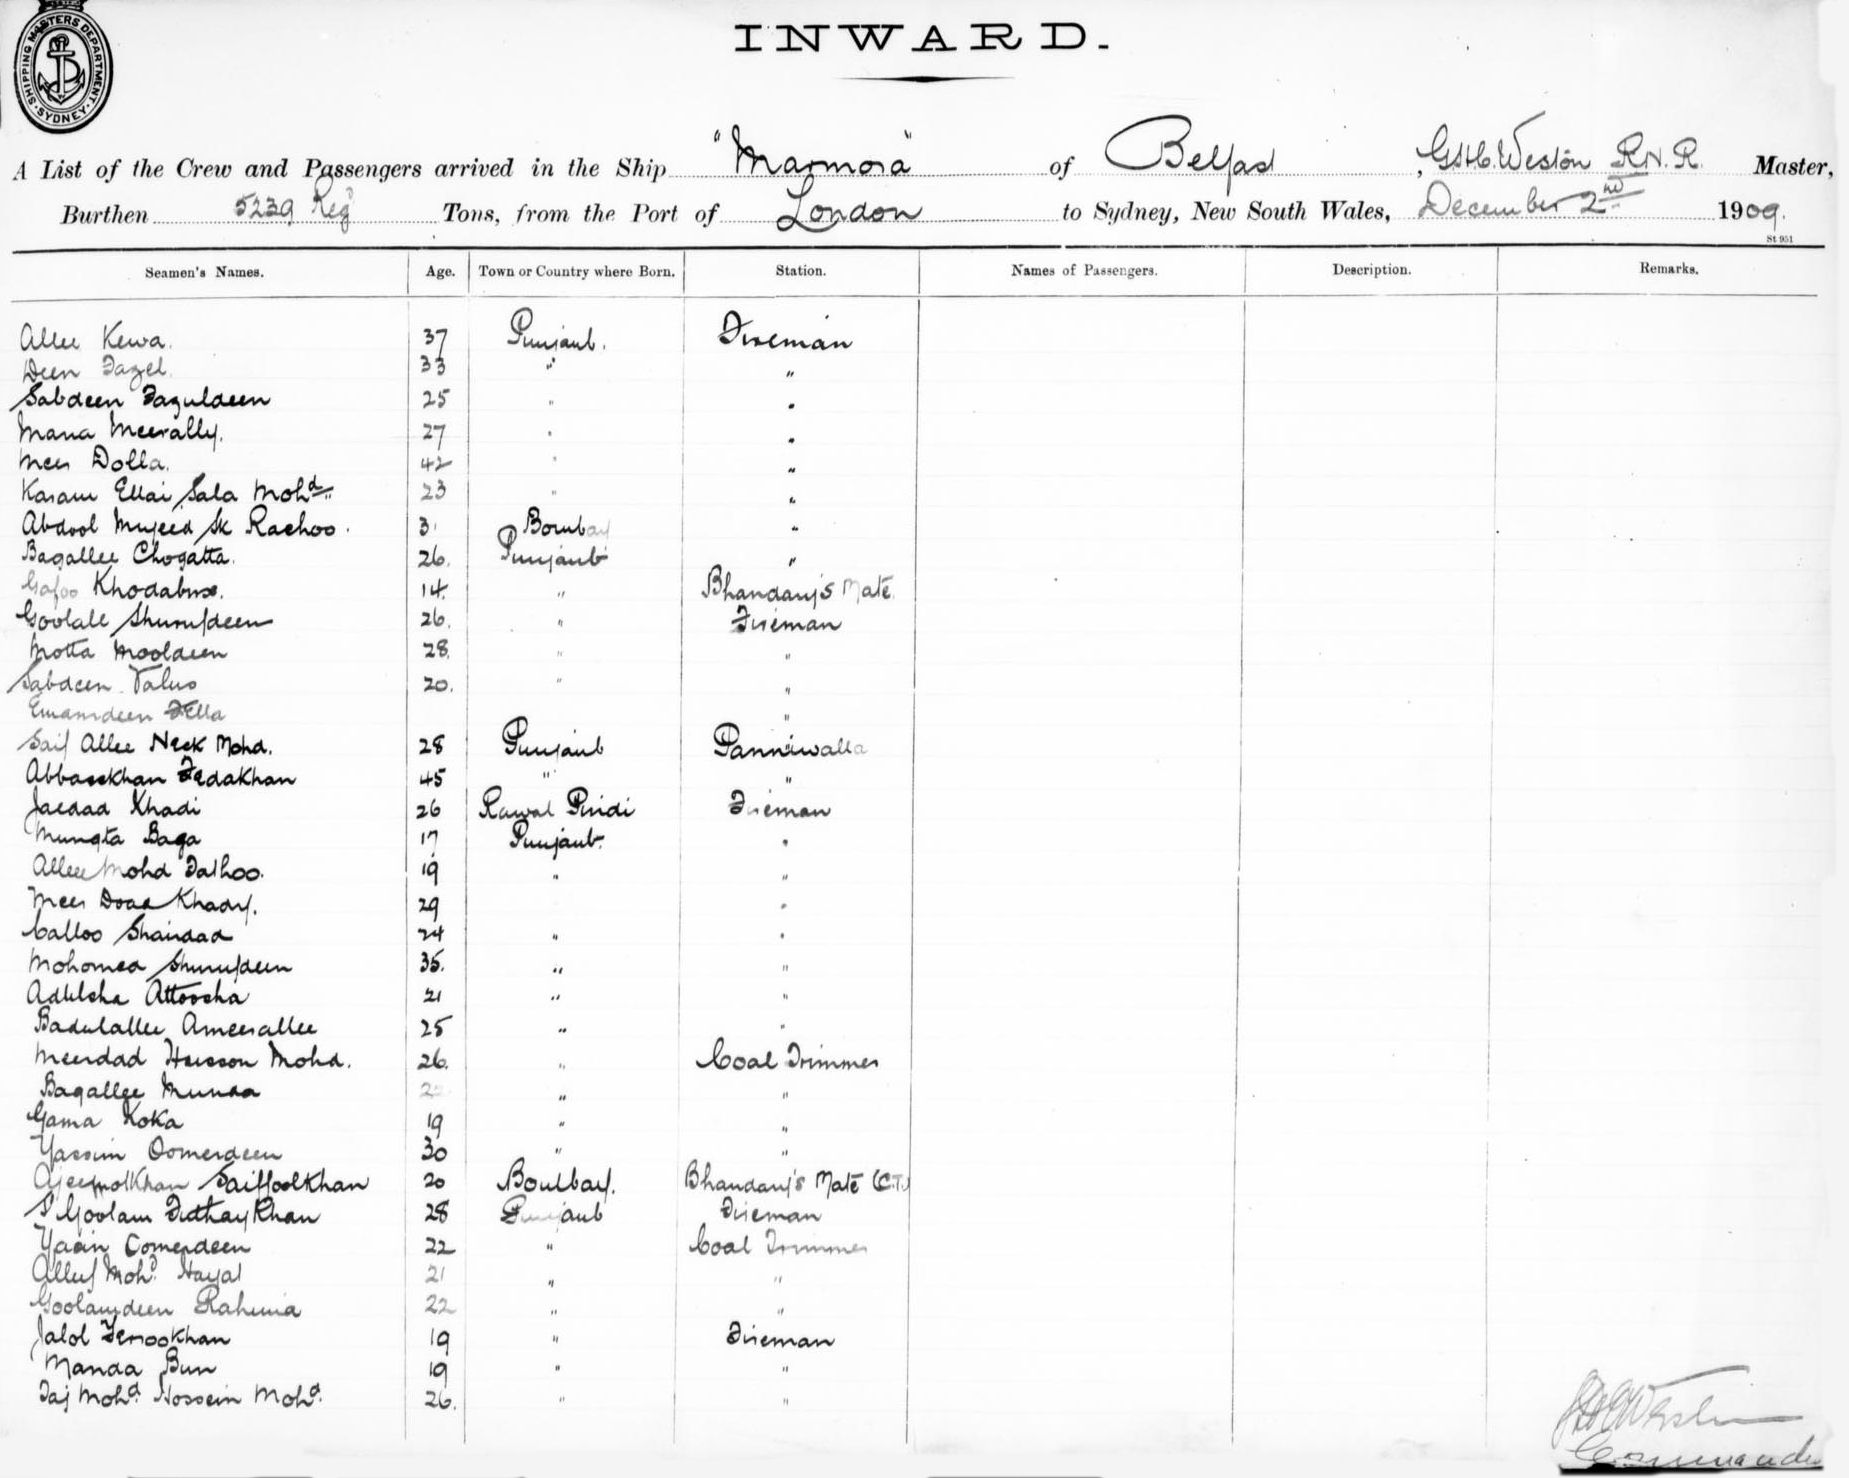 SHIPPING MASTERS DEPARTMENT · SYDNEY ·
INWARD.
A List of the Crew and Passengers arrived in the Ship "Marmora" of Belfast, G.H.C. Weston R.N.R. Master,
Burthen 5239 Reg Tons, from the Port of London to Sydney, New South Wales, December 2nd 1909.
St 951
Seamen's Names. Age. Town or Country where Born. Station. Names of Passengers. Description. Remarks.
Allee Kewa. 37 Punjaub. Fireman
Deen Fazel. 33 " "
Sabdeen Fazuldeen 25 " "
Mana Meerally. 27 " "
Meer Dolla. 42 " "
Karam Ellai Sala Mohd. 23 " "
Abdool Mujeed Sk Rachoo. 31 Bombay "
Bagallee Chogatta. 26. Punjaub "
Gafoo Khodabux. 14. " Bhandary's Mate
Goolall Shurufdeen 26. " Fireman
Motta Mooldeen 28. " "
Sabdeen Valus 20. " "
Emamdeen Fella "
Saif Allee Neck Mohd. 28 Punjaub Panniwalla
Abbaskhan Fedakhan 45 " "
Jaedad Khadi 26 Rawal Pindi Fireman
Mungta Baga 17 Punjaub. "
Allee Mohd Fathoo. 19 " "
Meer Doad Khady. 29 "
Calloo Shaidad 24 " "
Mohomed Shurufdeen 35. " "
Adulsha Attoosha 21 " "
Badulallee Ameerallee 25 " "
Meerdad Husson Mohd. 26. " Coal Trimmer
Bagallee Munsa 22 " "
Gama Koka 19 " "
Yassim Oomerdeen 30 " "
Ajeemolkhan Saiffoolkhan 20 Bombay. Bhandary's Mate (C.T.)
S Goolam Futhaykhan 28 Punjaub Fireman
Yasin Oomerdeen 22 " Coal Trimmer
Alluf Mohd. Hayat 21 " "
Goolamdeen Rahima 22 " "
Jalol Ferookhan 19 " Fireman
Manda Bun 19 " "
Taj Mohd. Hossein Mohd. 26. " "
G.H.C. Weston
Commander